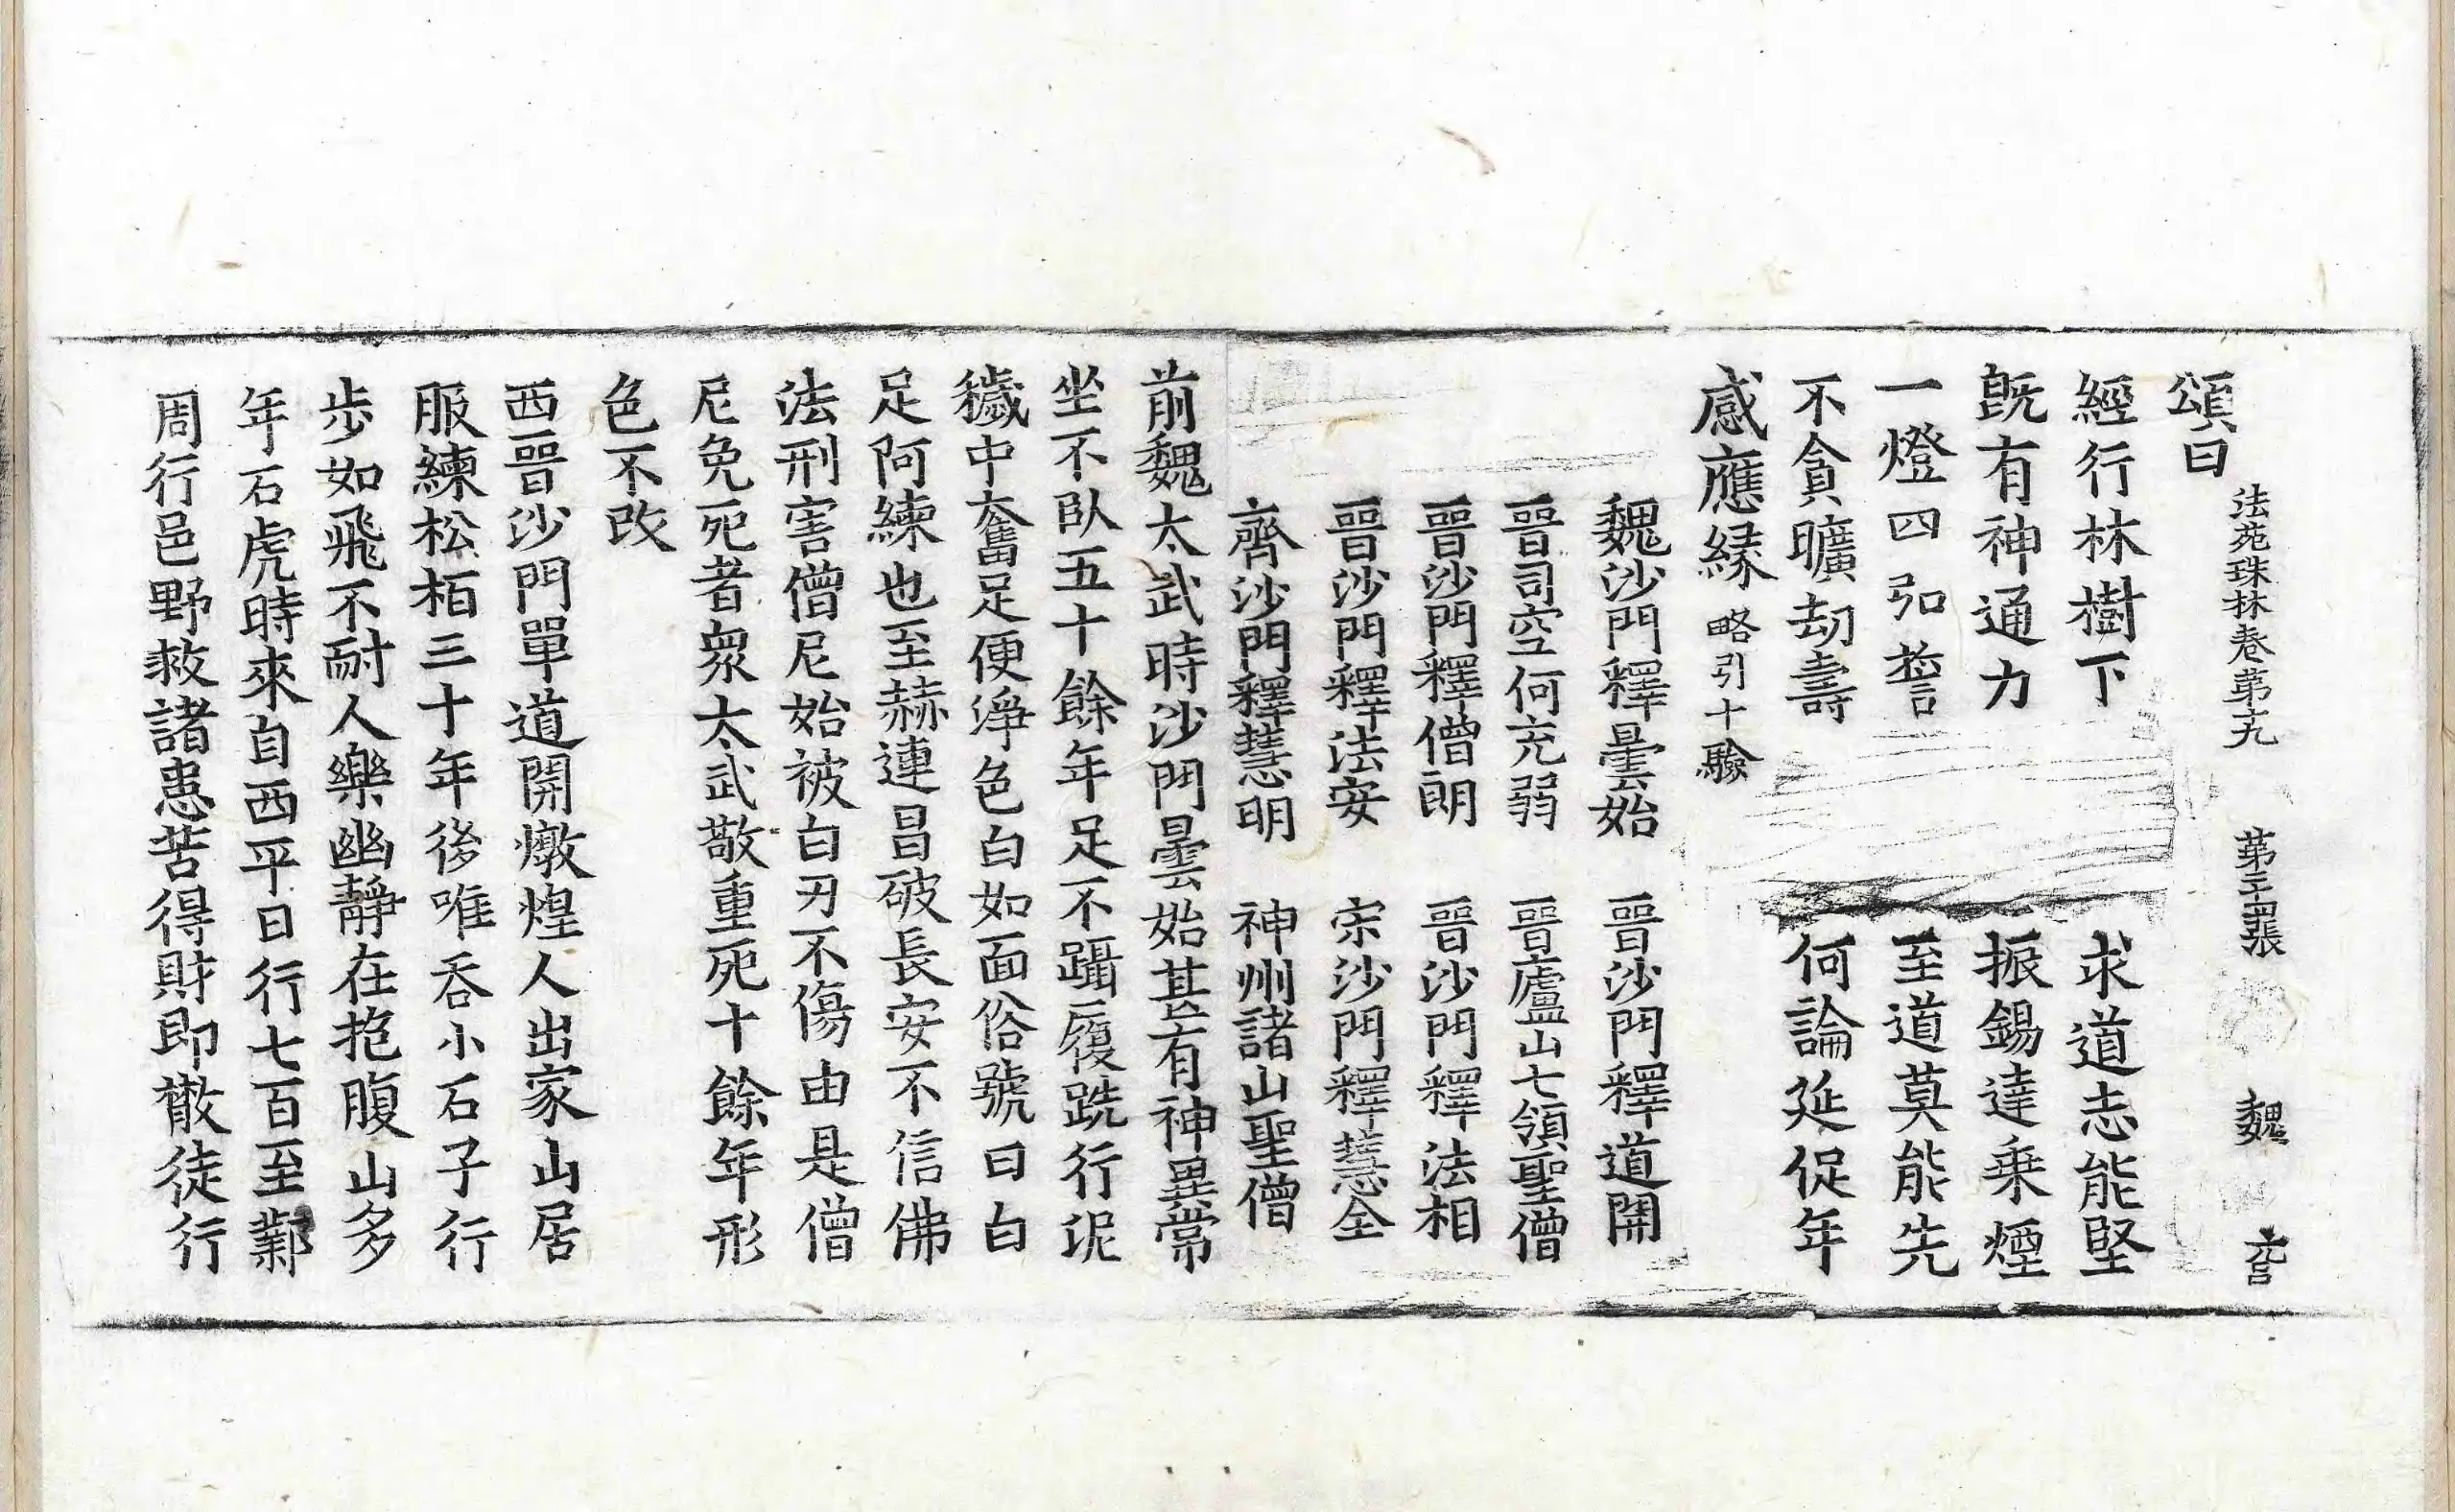 頌曰
法苑珠林卷第十九 第二十四張 魏
經行林樹下 求道志能堅
旣有神通力 振錫達乗煙
一燈四弘誓 至道莫能先
不貪曠劫壽 何論延促年
感應緣 略引十驗
魏沙門釋曇始 晉沙門釋道開
晉司空何充弱 晉廬山七領聖僧
晉沙門釋僧朗 晉沙門釋法相
晉沙門釋法安 宋沙門釋慧全
齊沙門釋慧明 神州諸山聖僧
前魏太武時沙門曇始甚有神異常
坐不臥五十餘年足不躡履跣行泥
穢中奮足便淨色白如面俗號曰白
足阿練也至赫連昌破長安不信佛
法刑害僧尼始被白刃不傷由是僧
尼免死者衆太武敬重死十餘年形
色不改
西晉沙門單道開燉煌人出家山居
服練松栢三十年後唯吞小石子行
步如飛不耐人樂幽靜在抱腹山多
年石虎時來自西平日行七百至鄴
周行邑野救諸患苦得財即散徒行